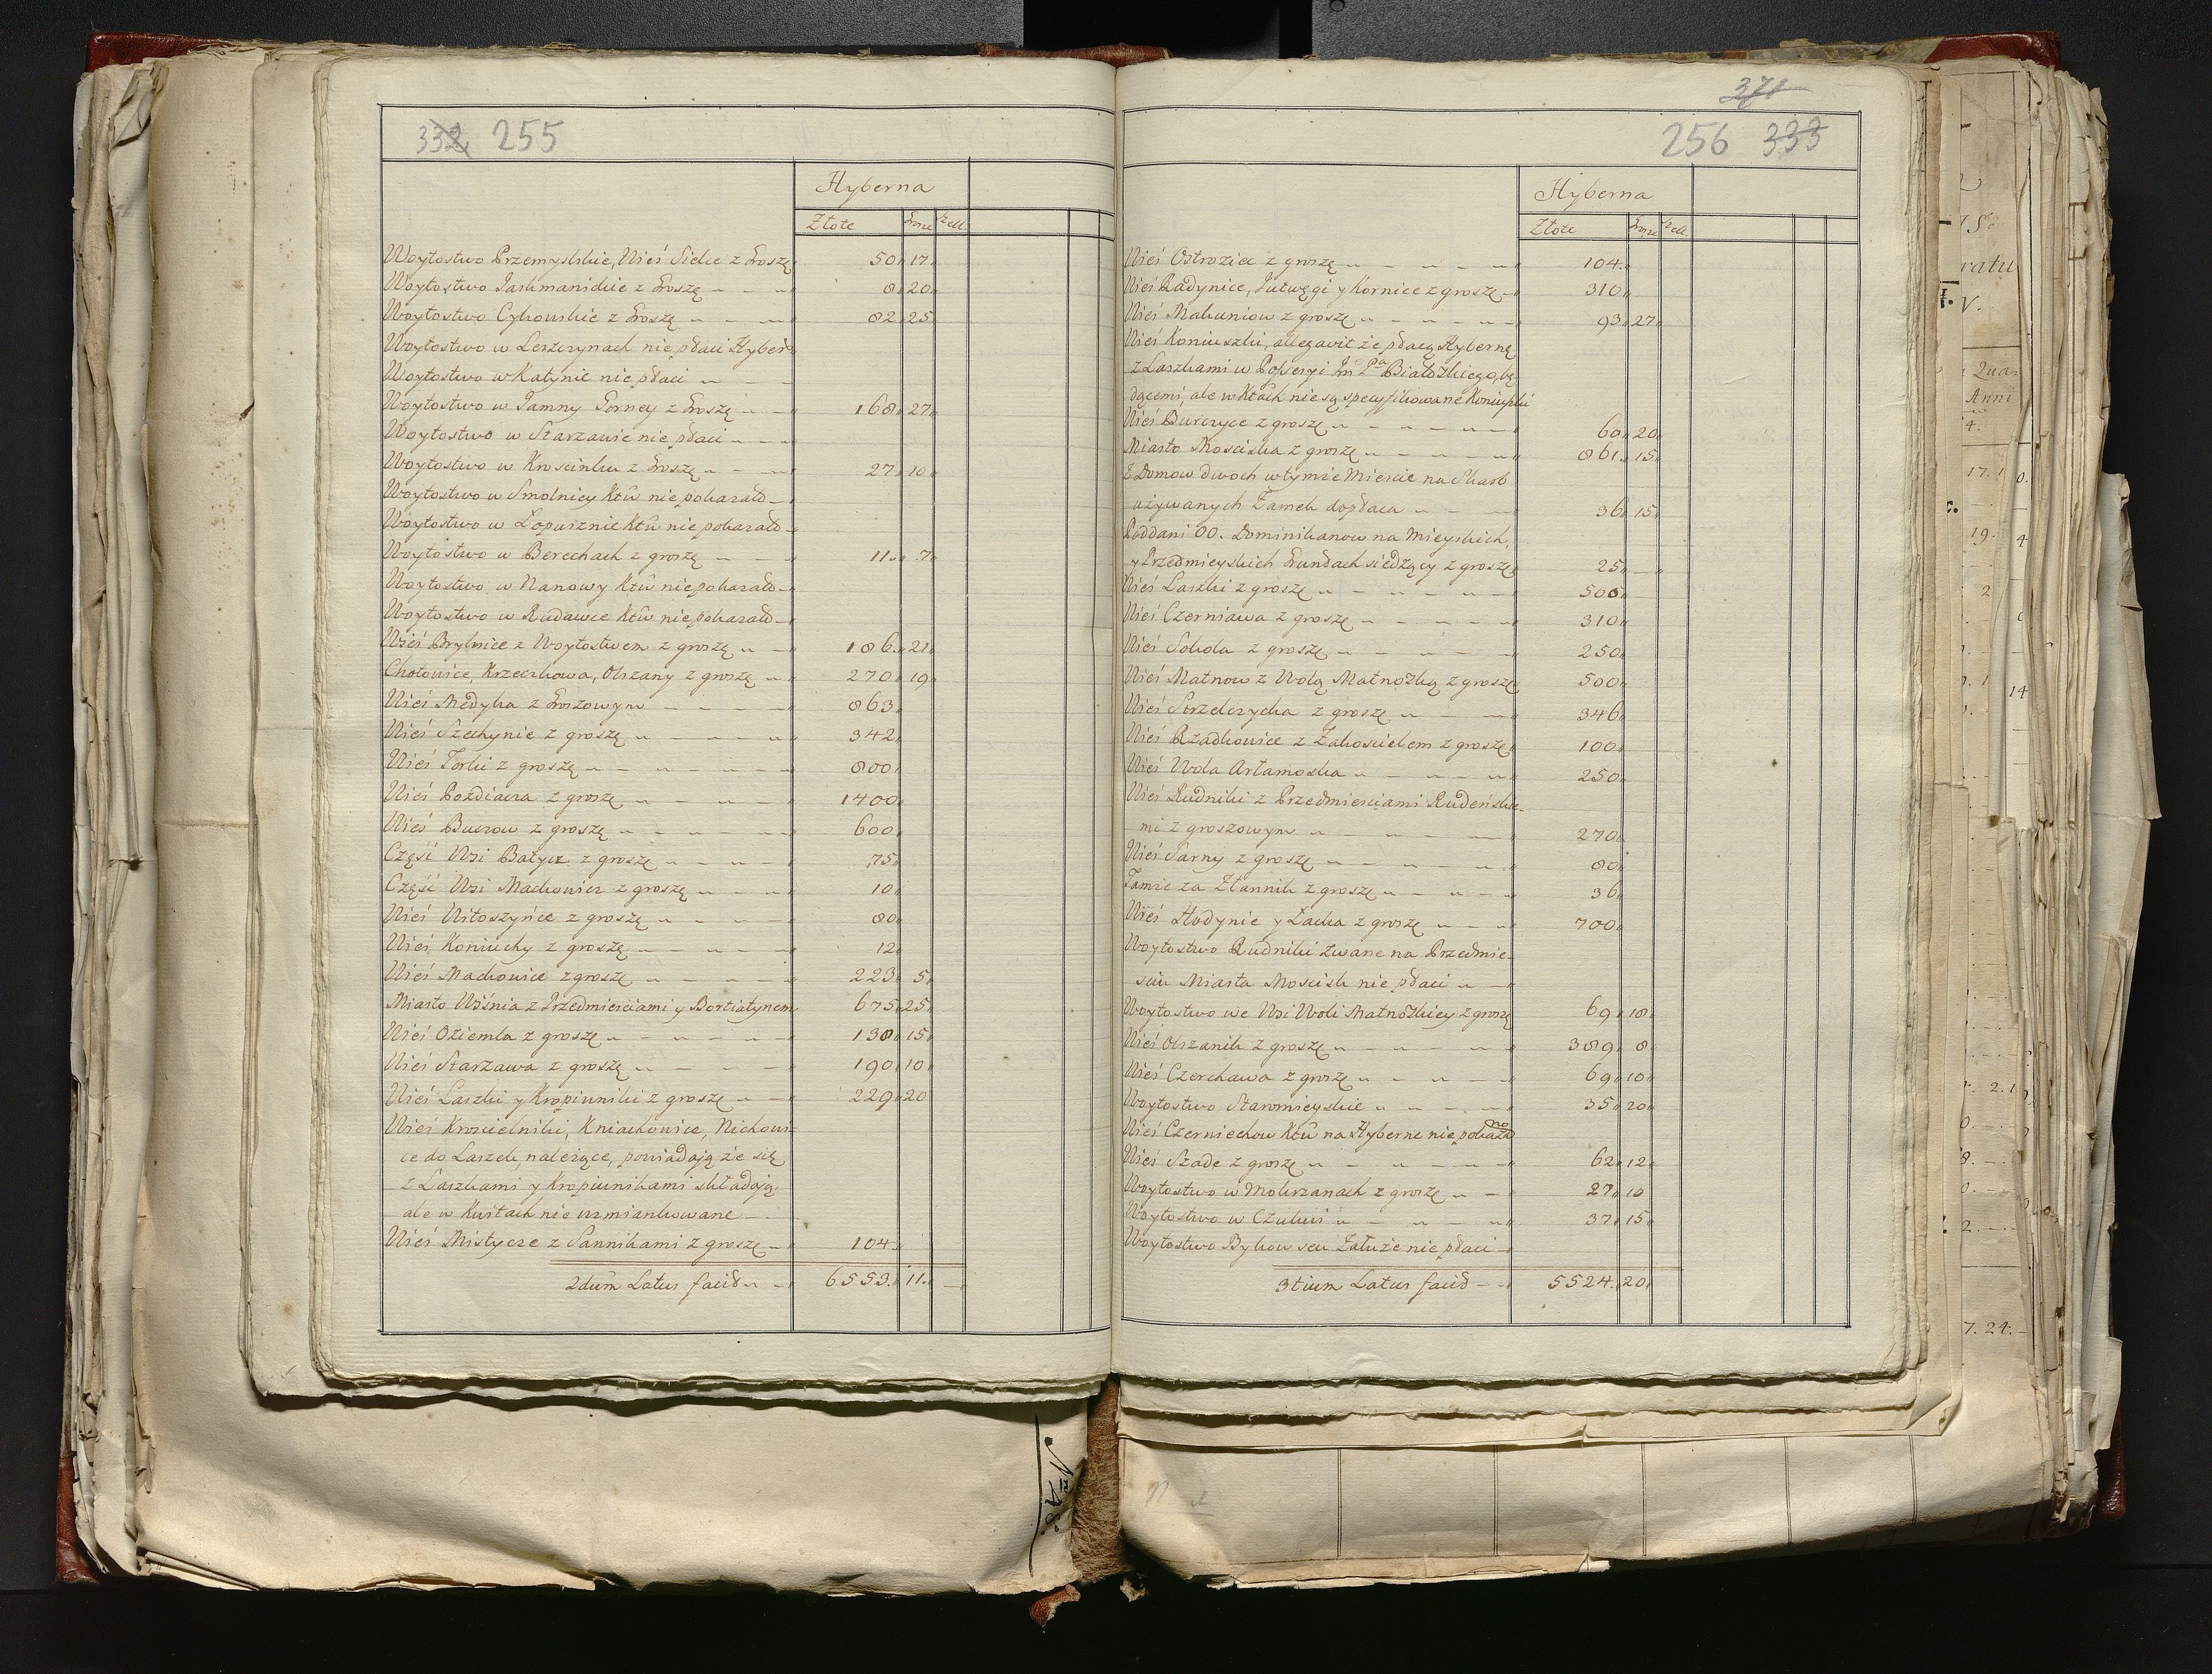 332 255
Hyberna
Złote Grosze Szell.
Woytostwo Przemyslskie, Wieś Sielce z Groszę 50 17
Woytostwo Jaxmanickie z Groszę 8 20
Woytostwo Cykowskie z Groszę 82 25
Woytostwo w Leszczynach nie płaci Hybern
Woytostwo w Katynie nie płaci
Woytostwo w Jamny Gorney z Groszę 168 27
Woytostwo w Starzawie nie płaci
Woytostwo w Krościnku z Groszę 27 10
Woytostwo w Smolnicy Ktū nie pokazało
Woytostwo w Łopusznie Ktū nie pokazało
Woytostwo w Berechach z groszę 11 7
Woytostwo w Nanowy Ktū nie pokazało
Woytostwo w Rudawce Ktū nie pokazało
Wieś Brylnice z Woytostwem z groszę 186 21
Chołowice, Krzeczkowa, Olszany z groszę 270 19
Wieś Medyka z Groszowym 863
Wieś Szechynie z groszę 342
Wieś Torki z groszę 800
Wieś Pozdiacza z groszę 1400
Wieś Bucow z groszę 600
Część Wsi Batycz z groszę 75
Część Wsi Mackowicz z groszę 10
Wieś Witoszyńce z groszę 80
Wieś Koniuchy z groszę 12
Wieś Mackowice z groszę 223 5
Miasto Wiśnia z Przedmieściami y Bortiatynem 675 25
Wieś Ożiemla z groszę 138 15
Wieś Starzawa z groszę 190 10
Wieś Laszki y Kropiwniki z groszę 229 20
Wieś Krościelniki, Kniachowice, Nichowi-
ce do Laszek należące, powiadają że się
z Laszkami y Kropiwnikami składają
ale w Kwitach nie wzmiankowane
Wieś Mistycze z Sannikami z groszę 104
2dum Latus facid 6553 11
371
256 333
Hyberna
Złote Grosze Szell.
Wieś Ostrozice z groszę 104
Wieś Radynice, Jatwęgi y Kornice z groszę 310
Wieś Makuniow z groszę 93 27
Wieś Koniuszki, allegavit że płacą Hybernę
z Laszkami w Possessyi Jm Pa Białozkiego, bę
dącemi, ale w Ktach nie są specyfikowane Koniuszki
Wieś Burczyce z groszę 60 20
Miasto Mosciska z groszę 861 15
Z Domow dwoch w tymże Mieście na Skarb
używanych Zamek dopłaca 36 15
Poddani OO. Dominikanow na Mieyskich,
y Przedmieyskich Gruntach siedzący z groszę 25
Wieś Laszki z groszę 500
Wieś Czerniawa z groszę 310
Wieś Sokola z groszę 250
Wieś Matnow z Wolą Matnozką z groszę 500
Wieś Strzelczycka z groszę 346
Wieś Rzadkowice z Zakościelem z groszę 100
Wieś Wola Artamoska 250
Wieś Rudniki z Przedmieściami Rudeńskie-
mi z groszowym 270
Wieś Sarny z groszę 80
Tamże za Złannik z groszę 36
Wieś Hodynie y Łacka z groszę 700
Woytostwo Rudniki zwane na Przedmie-
ściu Miasta Mościsk nie płaci
Woytostwo we Wsi Woli Matnozkiey z groszę 69 18
Wieś Olszanik z groszę 389 8
Wieś Czerchawa z groszę 69 10
Woytostwo Staromieyskie 35 20
Wieś Czerniechow Ktū na Hyberne nie pokazano
Wieś Szade z groszę 62 12
Woytostwo w Mokrzanach z groszę 27 10
Woytostwo w Czukwi 37 15
Woytostwo Bykow seu Załuże nie płaci
3tium Latus facid 5524 20